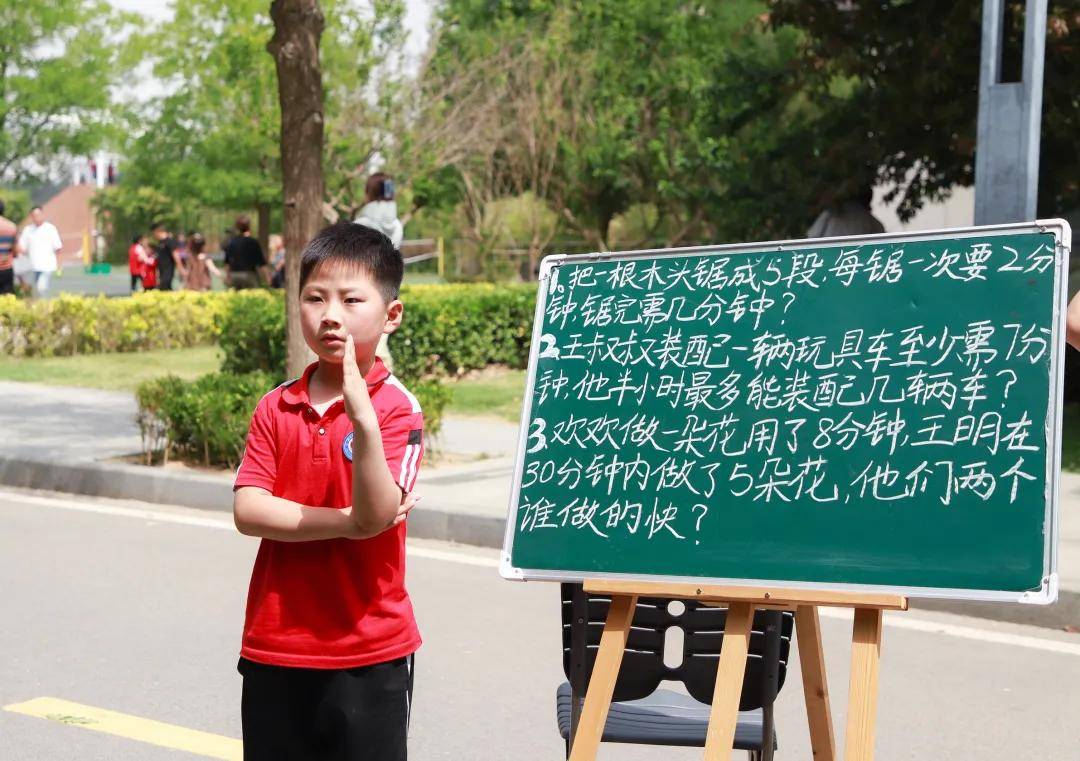 1.把一根木头锯成5段,每锯一次要2分
钟,锯完需几分钟?
2.王叔叔装配一辆玩具车至少需7分
钟,他半小时最多能装配几辆车?
3.欢欢做一朵花用了8分钟,王明在
30分钟内做了5朵花,他们两个
谁做的快?